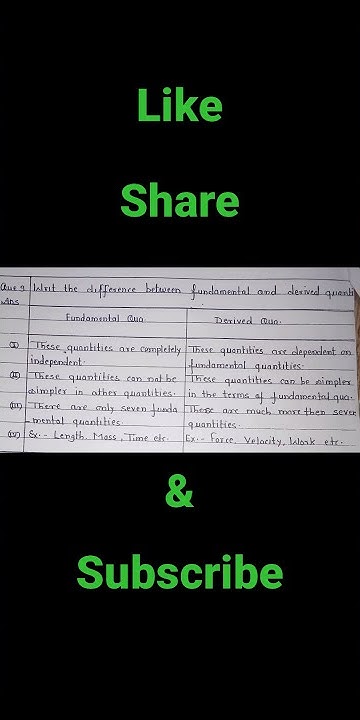 Like
Share
Que 2 Writ the difference between fundamental and derived quanti
Ans
Fundamental Qua. Derived Qua.
(I) These quantities are completely independent. These quantities are dependent on fundamental quantities.
(II) These quantities can not be simpler in other quantities. These quantities can be simpler in the terms of fundamental qua.
(III) There are only seven funda -mental quantities. These are much more then seven quantities.
(IV) Ex.- Length, Mass, Time etc. Ex.- Force, Velocity, Work etc.
&
Subscribe